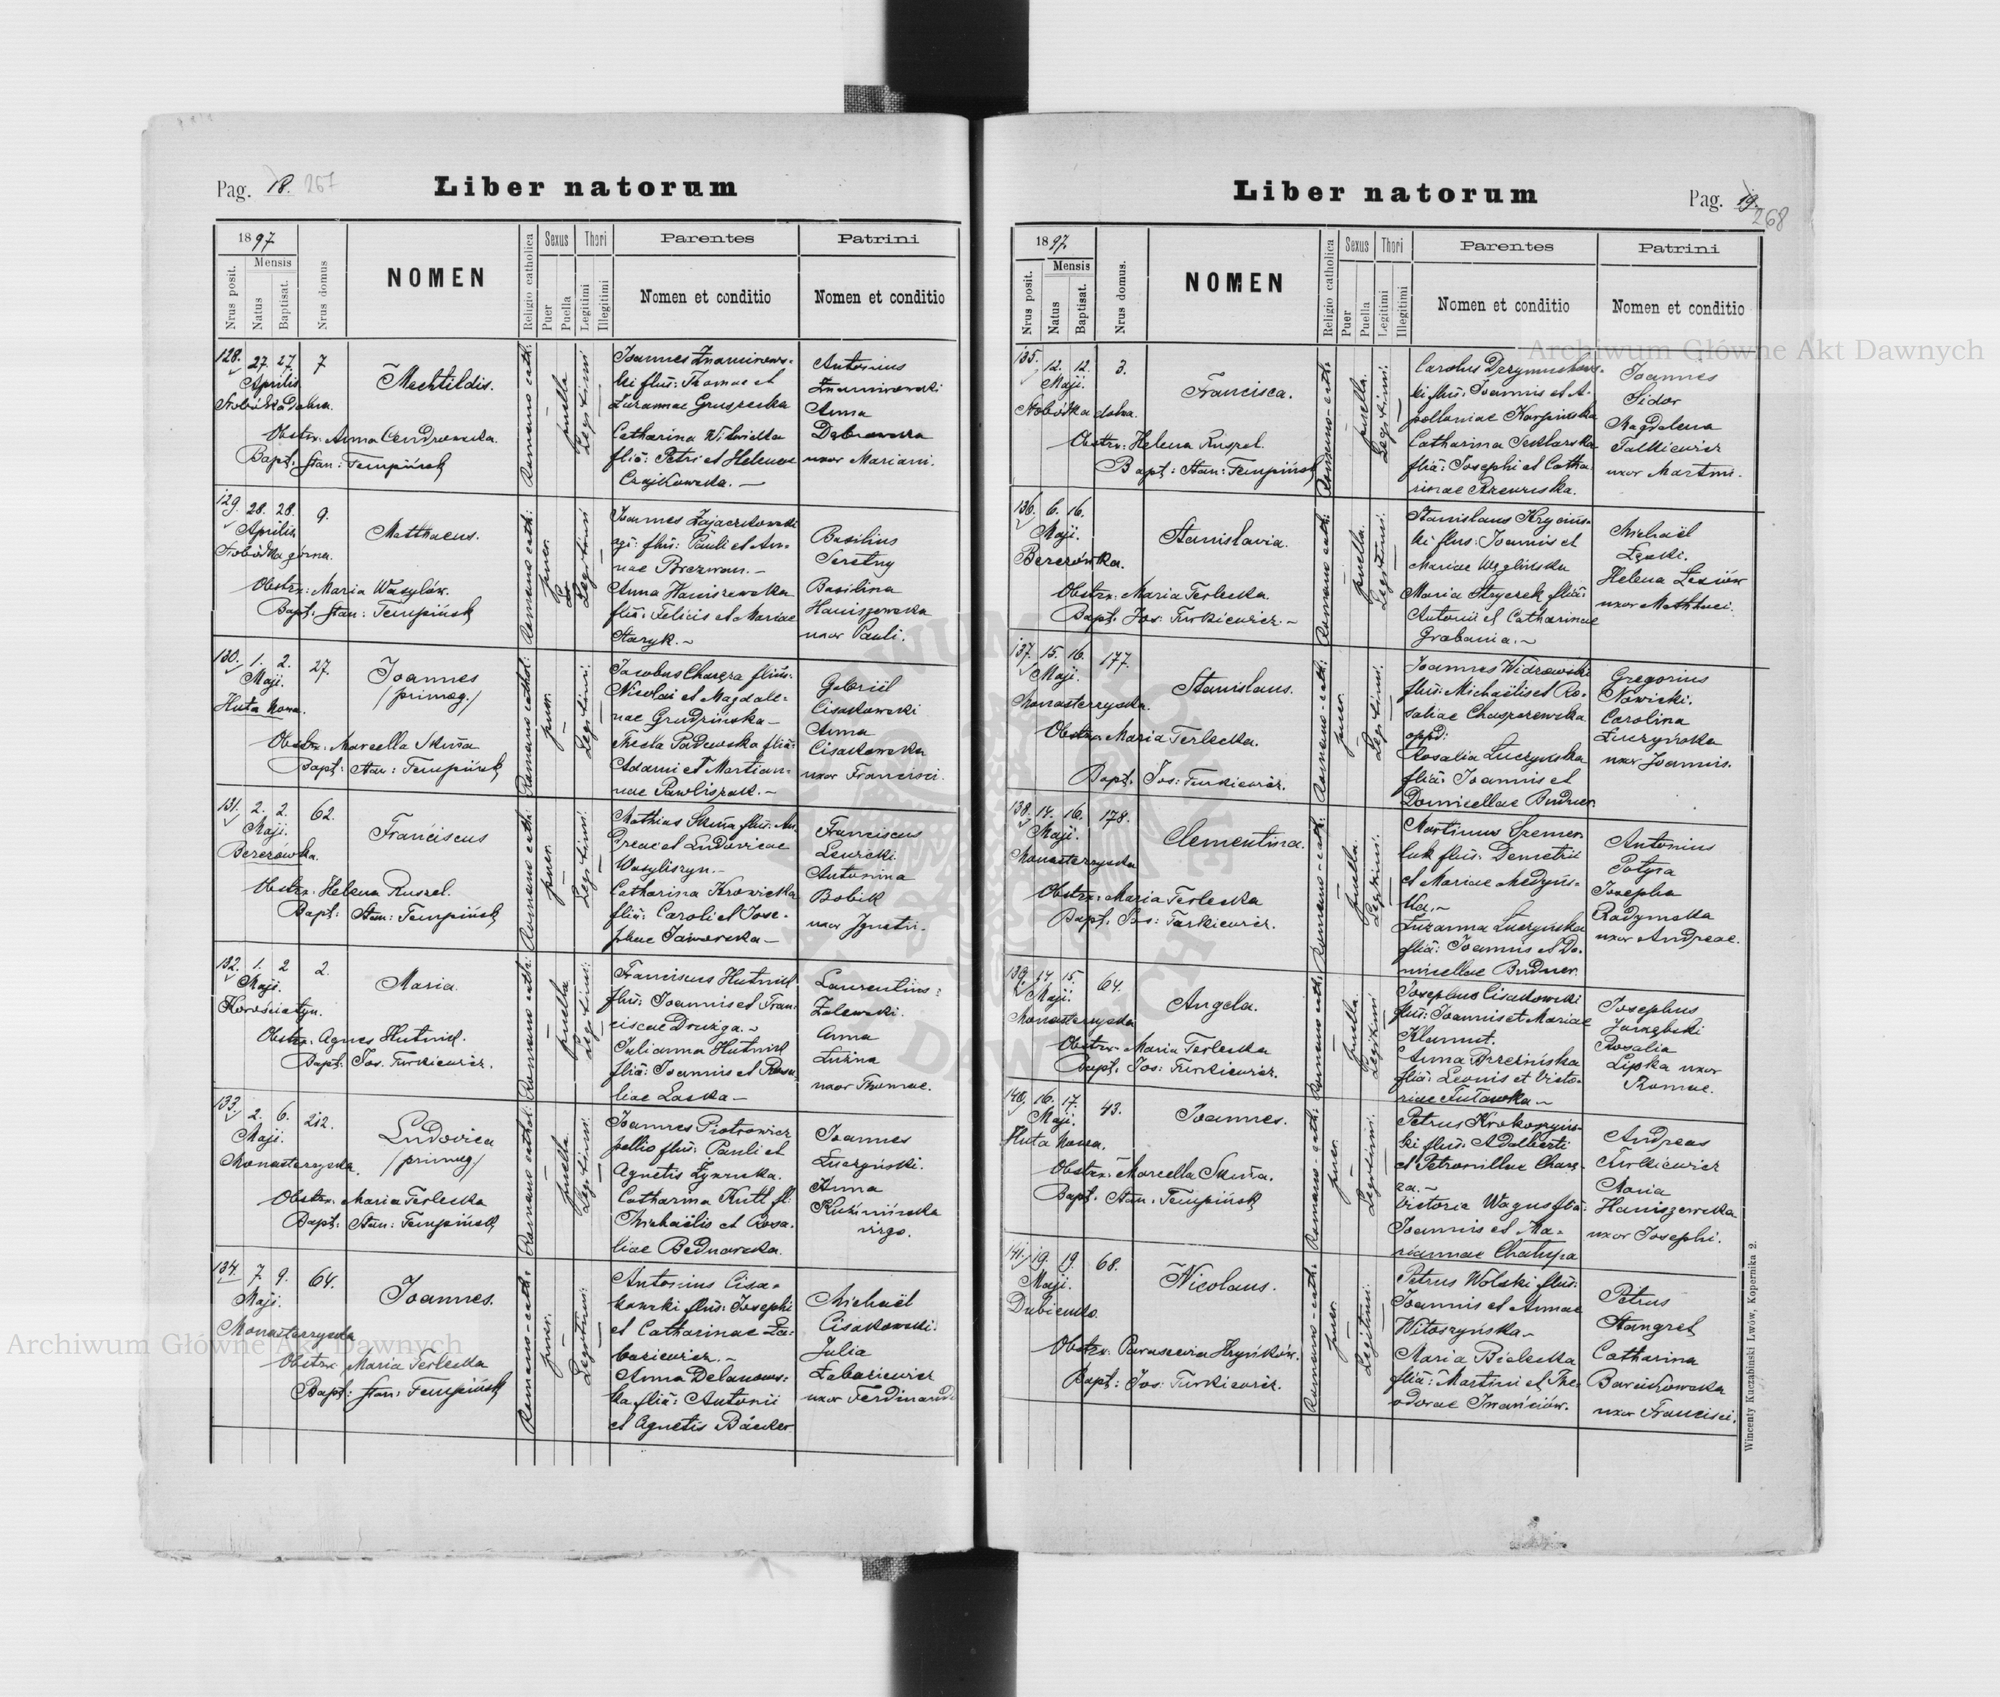 Pag. 18. 267
Liber natorum
1897.
Nrus posit.
Mensis
Natus
Baptisat.
Nrus domus
NOMEN
Religio catholica
Sexus
Puer
Puella
Thori
Legitimi
Illegitimi
Parentes
Nomen et conditio
Patrini
Nomen et conditio
128. 27. 27. 7
Aprilis
Mechtildis.
Bapt: Stan: Tempiński
Romano cath:
puella
Legitimi
ki flius: Thomae et
Catharina
flia: Petri et Helenae
Czajkowska. —
Antonius
Anna
Dąbrowska
uxor Mariani.
129. 28. 28. 9.
Aprilis
Słobódka górna.
Matthaeus.
Obstr: Maria Wasylów.
Bapt: Stan: Tempiński
Romano cath:
puer.
Legitimi
flius: Pauli et An-
nae
Anna Haniszewska
flia: Felicis et Mariae
Staryk. ~
Basilius
Seretny
Basilina
Haniszewska
uxor Pauli.
130. 1. 2. 27.
Maji.
Huta nowa.
Joannes
/primog./
Obstr: Marcella Skiba
Bapt: Stan: Tempiński
Romano cathol:
puer.
Legitimi:
Jacobus Charęza flius:
Nicolai et Magdale-
nae Grudzińska —
Thecla Padewska flia:
Adami et Martian-
nae Pawliszak. ~
Gabriël
Cisakowski
Anna
Cisakowska
uxor Francisci.
131. 2. 2. 62.
Maji.
Berezówka.
Franciscus
Obstr: Helena Ruszel.
Bapt: Stan: Tempiński
Romano cath:
puer.
Legitimi:
Mathias Skiba flius: An-
dreae et Ludovicae
Wasyliszyn. ~
Catharina Krowicka
flia: Caroli et Jose-
phae Jaworska —
Franciscus
Lewicki
Antonina
Bobik
uxor Ignatii.
132. 1. 2 2.
Maji.
Korościatyn.
Maria.
Obstr. Agnes Hutnik.
Bapt: Jos. Turkiewicz.
Romano cath:
puella
Legitimi:
Franciscus Hutnik
flius: Joannis et Fran-
ciscae Drużga. ~
Julianna Hutnik
flia: Joannis et Rosa-
liae Laska —
Laurentius
Zalewski.
Anna
uxor Thomae.
133. 2. 6. 212.
Maji.
Monasterzyska.
Ludovica
/primog/
Obstr. Maria Terlecka
Bapt: Stan: Tempiński
Romano cathol:
puella.
Legitimi:
Joannes Piotrowicz
pellio flius: Pauli et
Agnetis
Catharina Kutl fl:
Michaëlis et Rosa-
liae Bednarska.
Joannes
Łuczyński.
Anna
Kuźmińska
virgo.
134. 7. 9. 64.
Maji.
Monasterzyska
Joannes.
Obstr. Maria Terlecka
Bapt: Stan: Tempiński
Romano-cath:
puer.
Legitimi:
Antonius Cisa-
kowski flius: Josephi
et Catharinae Ła-
bariewicz. ~
Anna Delanows-
ka flia: Antonii
et Agnetis Bäcker.
Michaël
Cisakowski.
Julia
Łabariewicz
uxor Ferdinandi
Liber natorum
Pag. 19. 268
1897.
Nrus posit.
Mensis
Natus
Baptisat.
Nrus domus.
NOMEN
Religio catholica
Sexus
Puer
Puella
Thori
Legitimi
Illegitimi
Parentes
Nomen et conditio
Patrini
Nomen et conditio
135. 12. 12. 3.
Maji.
Słobódka dolna.
Francisca.
Obstr: Helena Ruszel.
Bapt: Stan: Tempiński
Romano-cath:
puella.
Legitimi:
ki flius: Joannis et A-
polloniae Karpińska
Catharina Szklarska
flia: Josephi et Catha-
rinae
Joannes
Sidor
Magdalena
Falkiewicz
uxor Martini.
136. 6. 16.
Maji.
Berezówka.
Stanislavia.
Obstr: Maria Terlecka.
Bapt. Jos: Turkiewicz. ~
Romano cath:
puella.
Legitimi:
ki flius: Joannis et
Mariae
Maria Stryczek flia:
Antonii et Catharinae
Grabania. ~
Michaël
Łącki.
Helena
uxor Mathaei.
137. 15. 16. 177.
Maji.
Monasterzyska.
Stanislaus.
Obstr. Maria Terlecka.
Bapt. Jos: Turkiewicz.
Romano-cath:
puer.
Legitimi:
Joannes Widzowski
flius: Michaëlis et Ro-
saliae
oppd:
Rosalia Łuczyńska
flia: Joannis et
Domicellae Budner.
Gregorius
Nowicki.
Carolina
Łuczyńska
uxor Joannis.
138. 14. 16. 178.
Maji.
Monasterzyska
Clementina.
Obstr: Maria Terlecka
Bapt. Jos: Turkiewicz.
Romano-cath:
puella.
Legitimi:
Martinus Szemer-
luk flius: Demetrii
et Mariae Medyńs-
ka. ~
Zuzanna Łuczyńska
flia: Joannis et Do-
micellae Budner.
Antonius
Potyra
Josepha
Radzymska
uxor Andreae.
139. 14. 15. 64.
Maji.
Monasterzyska
Angela.
Obstr. Maria Terlecka
Bapt. Jos: Turkiewicz.
Romano cath:
puella.
Legitimi
Josephus Cisakowski
flius: Joannis et Mariae
Klammt.
Anna Brzezińska
flia: Leonis et Victo-
riae Futawska ~
Josephus
Jarzębski
Rosalia
Lipska uxor
Romae.
140. 16. 17. 43.
Maji.
Huta nowa.
Joannes.
Obstr: Marcella Skiba.
Bapt: Stan. Tempiński
Romano-cath:
puer.
Legitimi:
ki flius: Adalberti
et Petronillae Charę-
za. ~
Victoria Wagus flia:
Joannis et Ma-
riannae Chałupa
Andreas
Turkiewicz
Maria
Haniszewska
uxor Josephi.
141. 19. 19. 68.
Maji.
Dubienko.
Nicolaus.
Obstr: Parascevia Hryńków.
Bapt: Jos: Turkiewicz.
Romano-cath:
puer.
Legitimi:
Petrus Wolski flius:
Joannis et Annae
Witoszyńska ~
Maria Bielecka
flia: Martini et The-
odorae Iwańciów.
Petrus
Stangret
Catharina
Barcikowska
uxor Francisci.
Wincenty Kuczabiński Lwów, Kopernika 2.
Archiwum Główne Akt Dawnych
Archiwum Główne Akt Dawnych